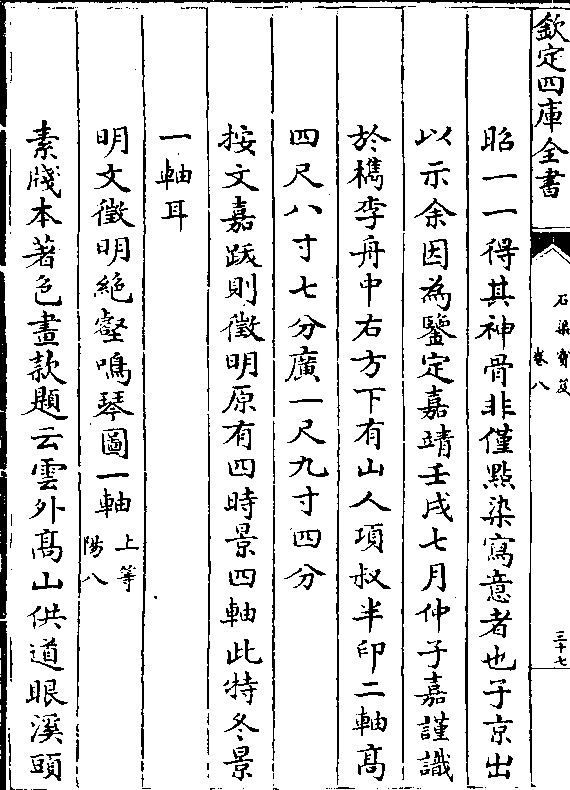 欽定四庫全書
石渠寳笈
卷八
三十七
昭一一得其神骨非僅點染寫意者也子京出
以示余因為鑒定嘉靖壬戌七月仲子嘉謹識
於檇李舟中右方下有山人項叔半印二軸髙
四尺八寸七分廣一尺九寸四分
按文嘉跋則徵明原有四時景四軸此特冬景
一軸耳
明文徵明絶壑鳴琴圖一軸上等陽八
素牋本著色畫款題云雲外髙山供道眼溪頭